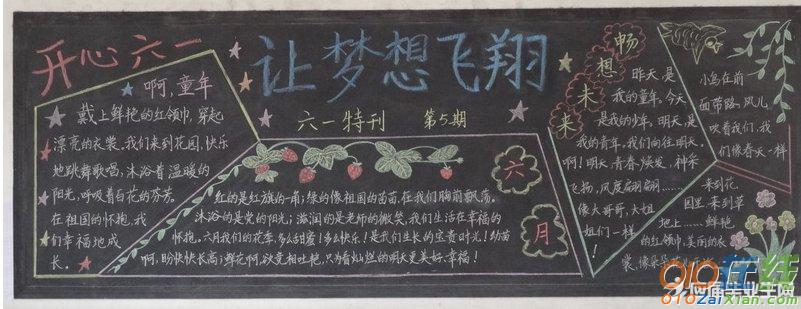 开心六一
让梦想飞翔
六一特刊 第5期
啊,童年
戴上鲜艳的红领巾,穿起
漂亮的衣裳。我们来到花园,快乐
地跳舞歌唱,沐浴着温暖的
阳光,呼吸着百花的芬芳。
在祖国的怀抱,我
们幸福地成
长。
六
月
红的是红旗的一角;绿的像祖国的苗苗,在我们胸前飘荡。
沐浴的是党的阳光;滋润的是老师的微笑,我们生活在幸福的
怀抱。六月我们的花季,多么甜蜜!多么快乐!是我们生长的宝贵时光!幼苗
啊,盼快快长高;鲜花啊,欲竞相吐艳,只为看灿烂的明天更美好、幸福!
畅想未来
昨天,是
我的童年,今天
是我的少年,明天,是
我的青年,我们向往明天。
啊!明天,青春焕发,神采
飞扬,风度翩翩……
像大哥哥,大姐
姐们一样
小鸟在前
面带路,风儿
吹着我们,我
们像春天一样
来到花
园里,来到草
地上……鲜艳
的红领巾,美丽的衣
裳,像朵
910在线
910ZaiXian.com
应届毕业生网